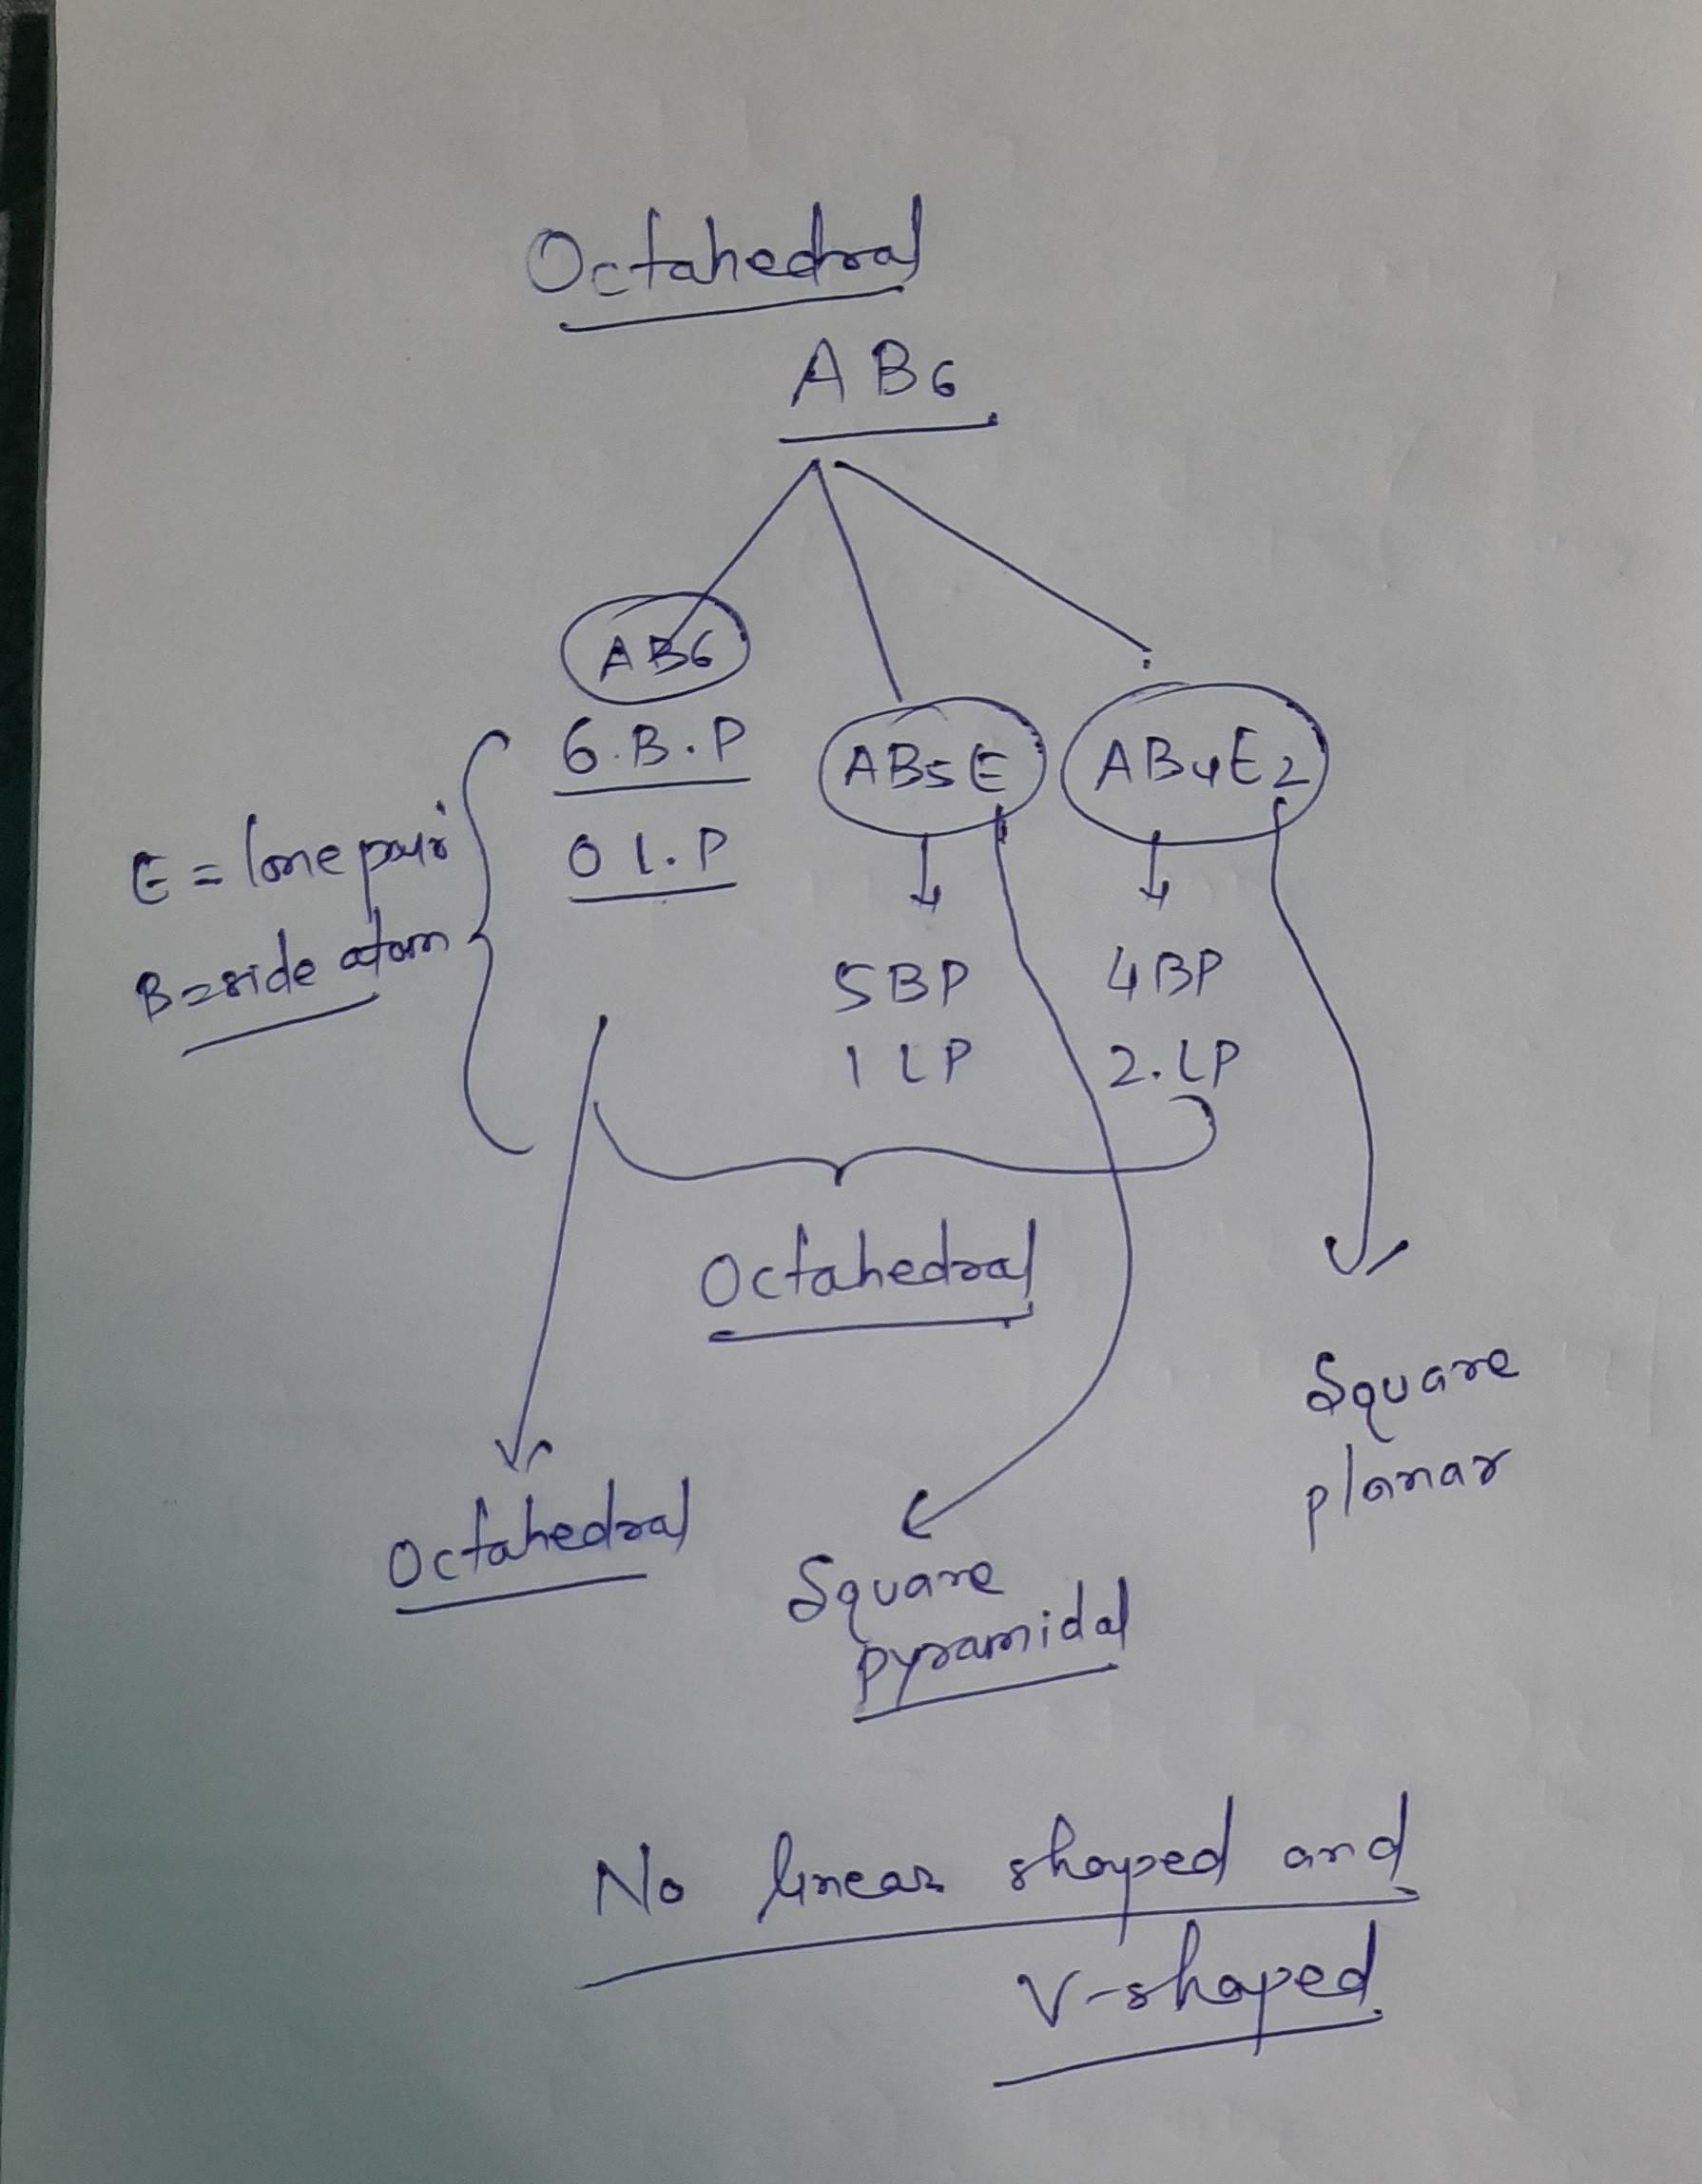 Octahedral
AB6
AB6
6.B.P
0 l.P
E = lone pair
B = side atom
AB5E
5BP
1 LP
AB4E2
4BP
2.LP
Octahedral
Octahedral
Square
pyramidal
Square
planar
No linear shaped and
V-shaped.